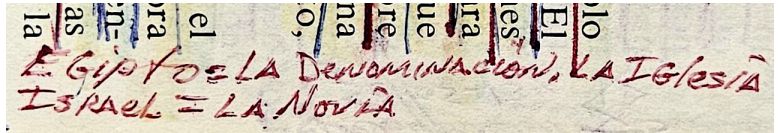 la
as
en-
ora
el
o,
na
bre
que
ura
nes
El
olo
EGIPTO = LA DENOMINACIÓN. LA IGLESIA
ISRAEL = LA NOVIA